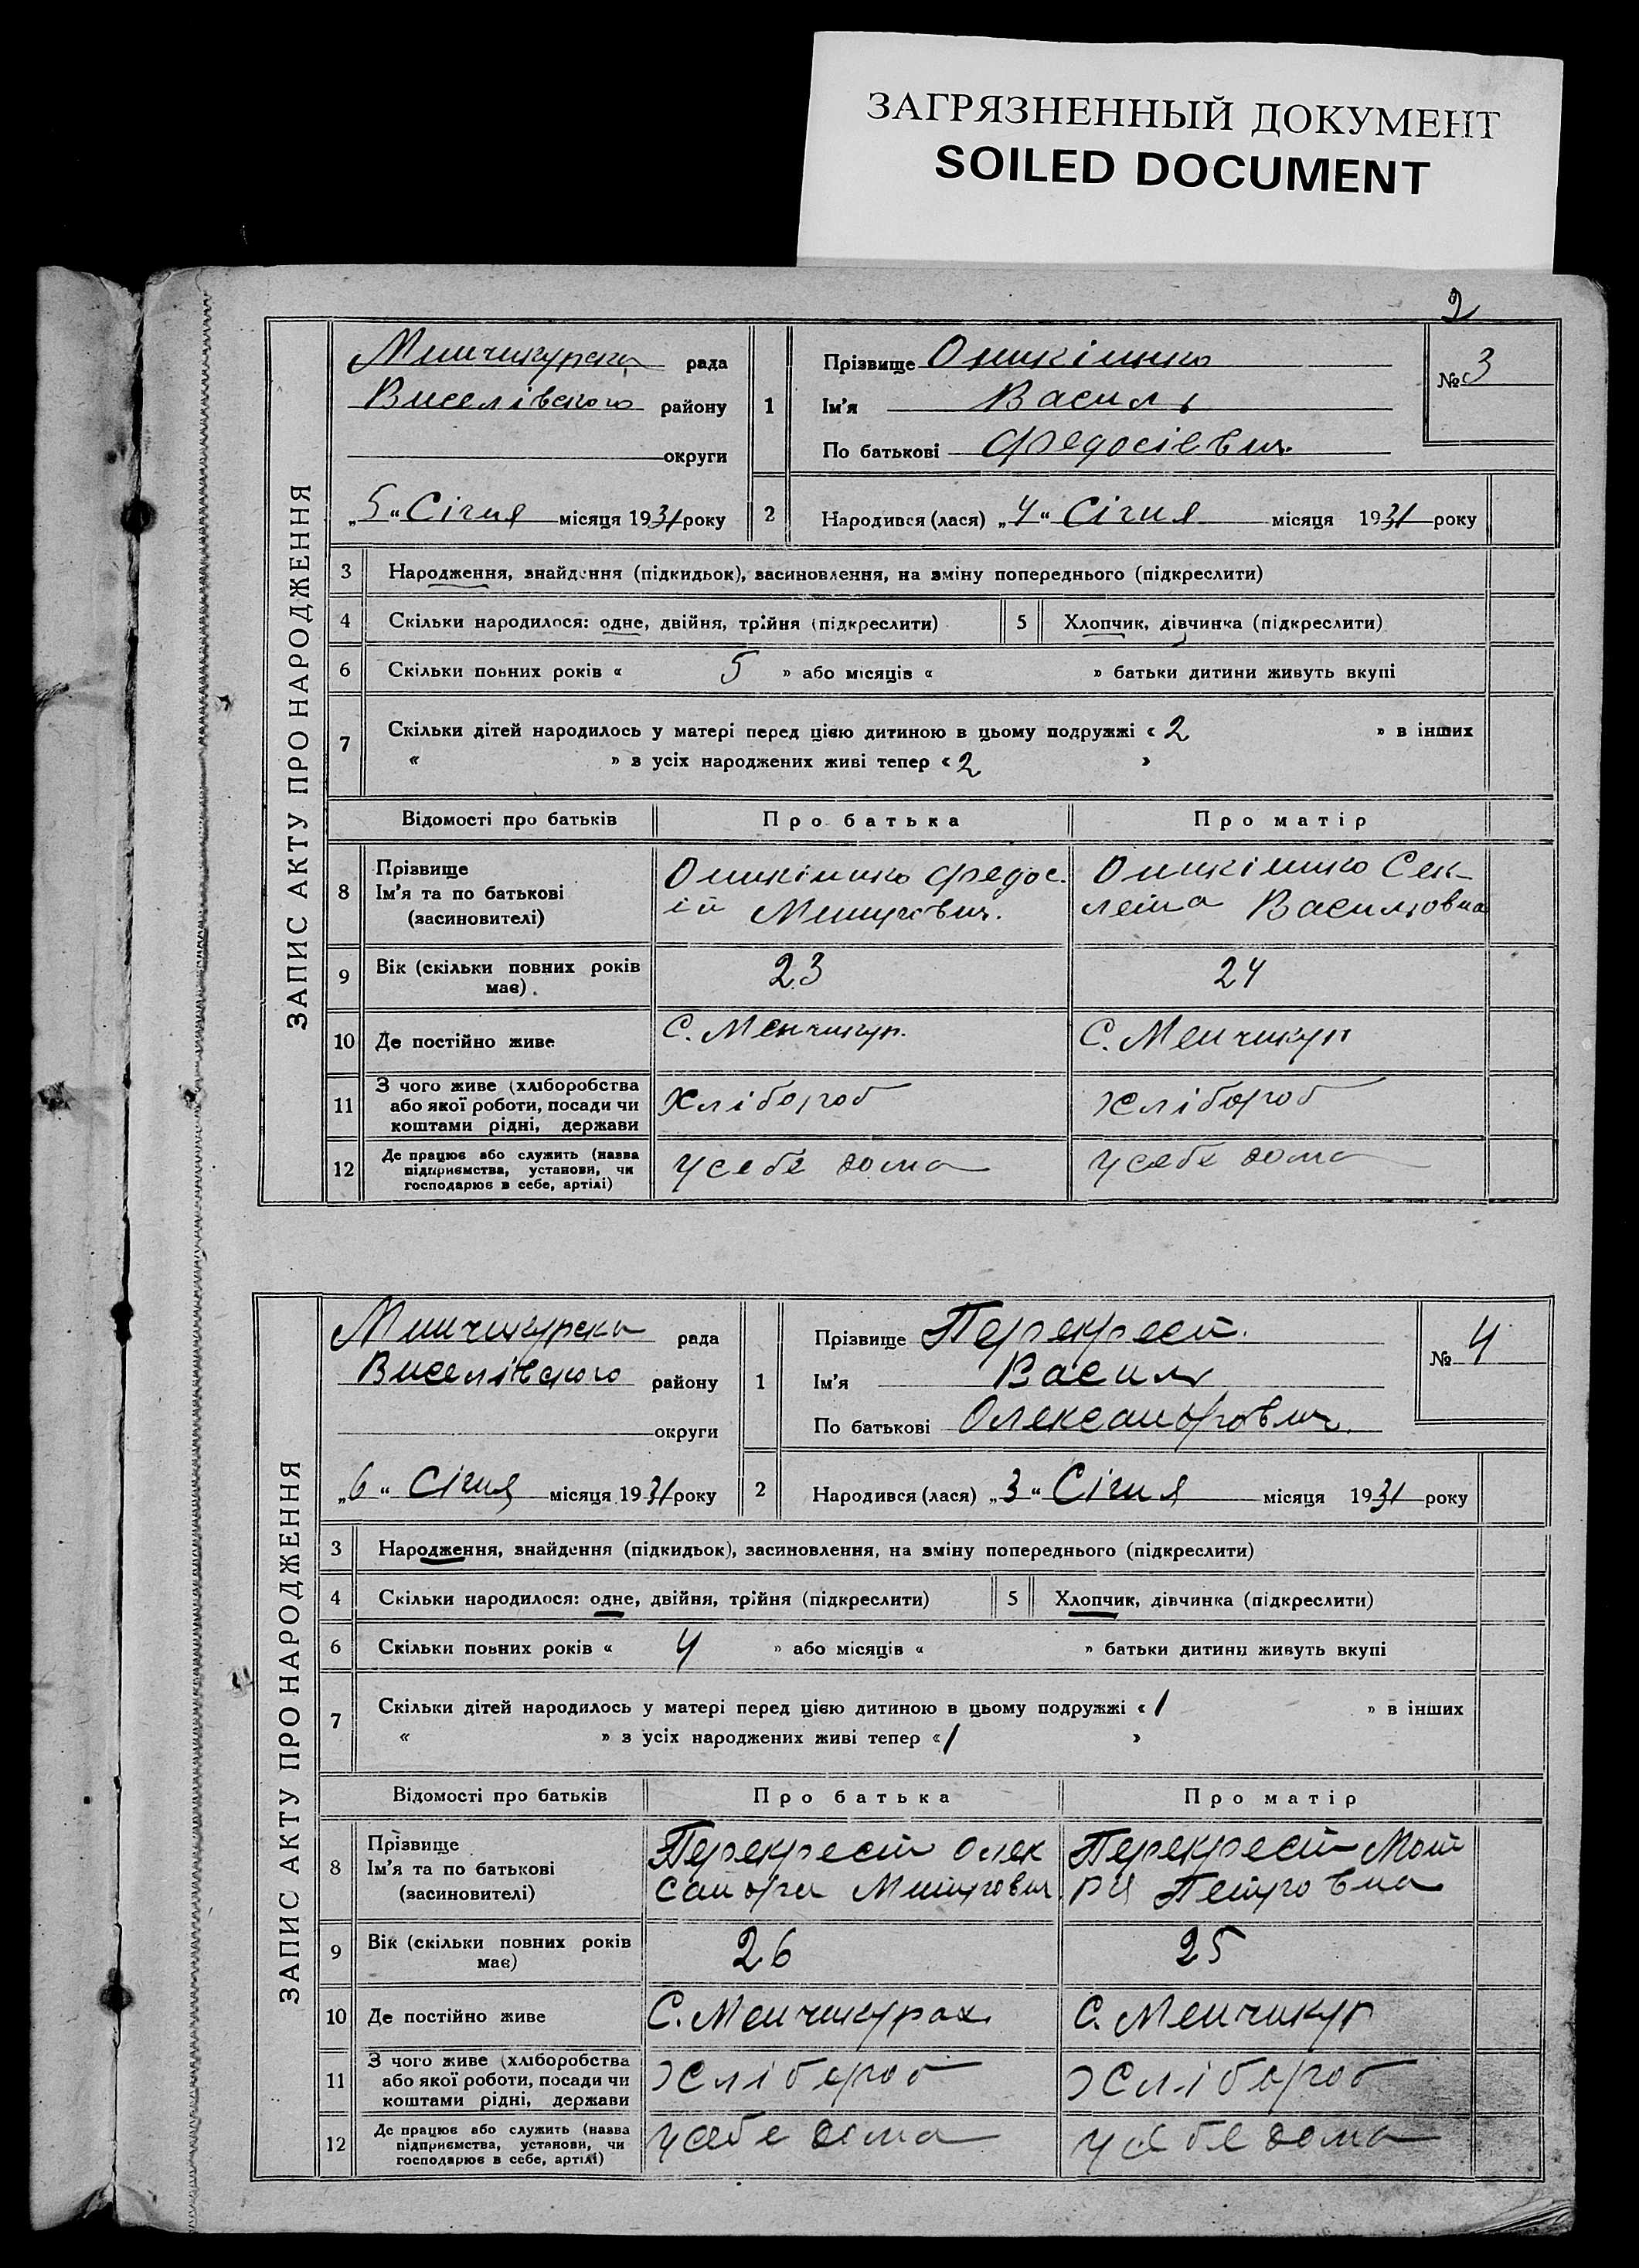 ЗАГРЯЗНЕННЫЙ ДОКУМЕНТ
SOILED DOCUMENT
2
ЗАПИС АКТУ ПРО НАРОДЖЕННЯ
рада
Виселівского району
округи
„5“ Січня місяця 1931 року
1
Прізвище
Ім'я Василь
По батькові Федосієвич
№ 3
2
Народився (лася) „4“ Січня місяця 1931 року
3 Народження, знайдення (підкидьок), засиновлення, на зміну попереднього (підкреслити)
4 Скільки народилося: одне, двійня, трійня (підкреслити) 5 Хлопчик, дівчинка (підкреслити)
6 Скільки повних років « 5 » або місяців « » батьки дитини живуть вкупі
7 Скільки дітей народилось у матері перед цією дитиною в цьому подружжі « 2 » в інших
« » з усіх народжених живі тепер « 2 »
Відомості про батьків Про батька Про матір
8 Прізвище
Ім'я та по батькові
(засновителі)
Федос.
ій
Василовна
9 Вік (скільки повних років
має) 23 24
10 Де постійно живе С. Менчикур. С. Менчикур
11 З чого живе (хліборобства
або якої роботи, посади чи
коштами рідні, держави
Хлібороб Хлібороб
12 Де працює або служить (назва
підприємства, установи, чи
господарює в себе, артілі)
у себе дома у себе дома
ЗАПИС АКТУ ПРО НАРОДЖЕННЯ
рада
Виселівского району
округи
„6“ Січня місяця 1931 року
1
Прізвище Перекрест
Ім'я Василь
По батькові Олександрович.
№ 4
2
Народився (лася) „3“ Січня місяця 1931 року
3 Народження, знайдення (підкидьок), засиновлення, на зміну попереднього (підкреслити)
4 Скільки народилося: одне, двійня, трійня (підкреслити) 5 Хлопчик, дівчинка (підкреслити)
6 Скільки повних років « 4 » або місяців « » батьки дитини живуть вкупі
7 Скільки дітей народилось у матері перед цією дитиною в цьому подружжі « 1 » в інших
« » з усіх народжених живі тепер « 1 »
Відомості про батьків Про батька Про матір
8 Прізвище
Ім'я та по батькові
(засиновителі)
Перекрест Олек
сандр
Перекрест Мот
ря Петровна
9 Вік (скільки повних років
має) 26 25
10 Де постійно живе С. Менчикурах С. Менчикур
11 З чого живе (хліборобства
або якої роботи, посади чи
коштами рідні, держави
Хлібороб Хлібороб
12 Де працює або служить (назва
підприємства, установи, чи
господарює в себе, артілі)
у себе дома у себе дома